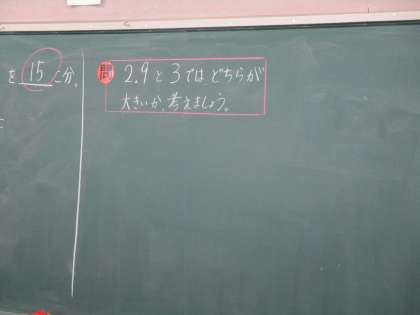 を 15 こ分。
問 2.9と3では、どちらが
大きいか、考えましょう。